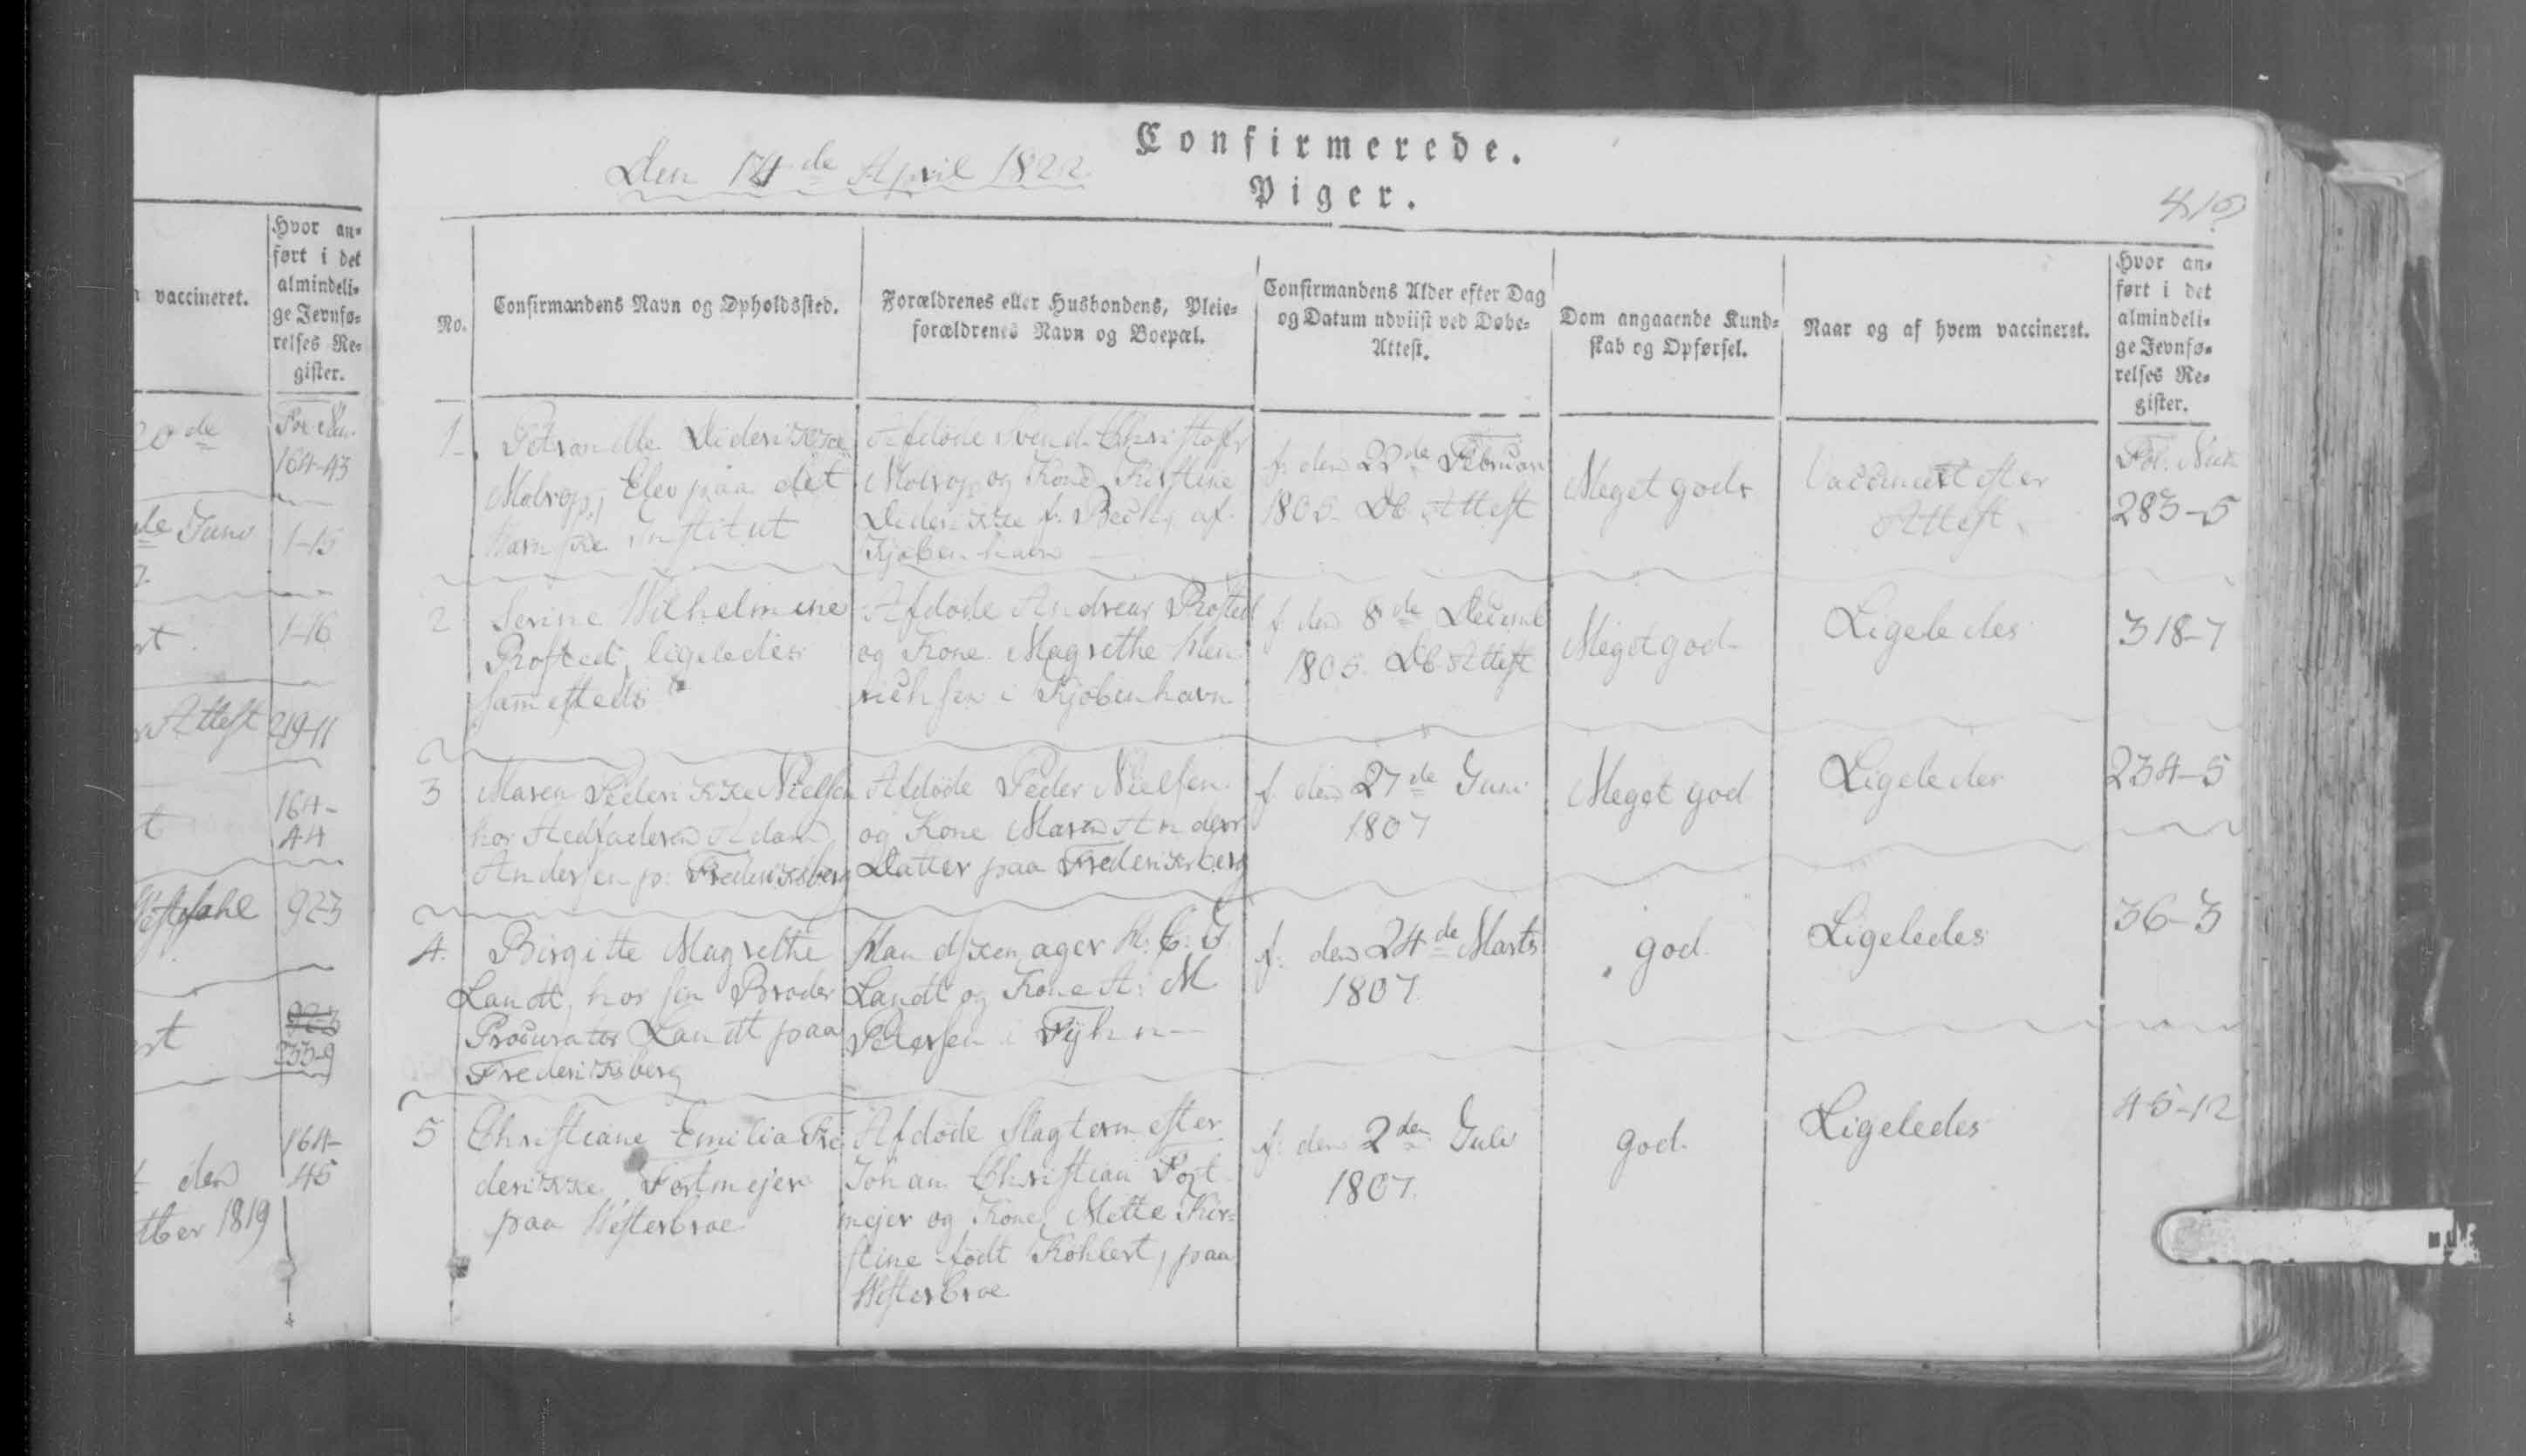 vaccineret.
Hvor an=
ført i det
almindeli=
ge Jevnfø=
relses Re=
gister.
20de
164-43
de Juni 1-15
1-16
Attest 219-11
164-
44
923
923
233-9
164-
den 45
tber 1819
Confirmerede.
Den 14de April 1822
Piger.
No.
Confirmandens Navn og Opholdssted.
Forældrenes eller Husbondens, Pleie=
forældrenes Navn og Boepæl.
Confirmandens Alder efter Dag
og Datum udviist ved Døbe=
Attest.
Dom angaaende Kund=
skab og Opførsel.
Naar og af hvem vaccineret.
Hvor an=
ført i det
almindeli=
ge Jevnfø=
relses Re=
gister.
1.
Petronelle Diderikke
Molrop, Elev paa det
Institut
Afdøde Svend Christofr
Molrop og Kone Kirstine
Diderikke f. Bech, af
Kjøbenhavn
f: den 22de Februar
1805. Db Attest
Meget god
Vaccineret efter
Attest.
Fol.
283-5
2
Serine Wilhelmine
Rosted, ligeledes
samesteds
Afdøde Andreas Rosted
og Kone Magrethe Hen
richsen i Kjøbenhavn
f. den 8de Decemb
1805. Db Attest
Meget god
Ligeledes
318-7
3
Maren Pederikke Nielsen
hos Stedfaderen Adam
Andersen p: Frederiksberg
Afdøde Peder Nielsen
og Kone Maren Anders
Datter paa Frederiksberg
f. den 27de Juni
1807
Meget god
Ligeledes
234-5
4.
Birgitte Magrethe
Landt, hos sin Broder
Procurator Landt paa
Frederiksberg
H. C. J.
Landt og Kone A: M
Petersen i Fyhn
f: den 24de Marts
1807
god
Ligeledes
36-3
5
Christiane Emilia Fre
derikke Fortmejer
paa Westerbroe
Afdøde Slagtermester
Johan Christian Fort
mejer og Kone Mette Kir=
stine født Kohlert, paa
Westerbroe
f: den 2den Juli
1807.
god
Ligeledes
45-12